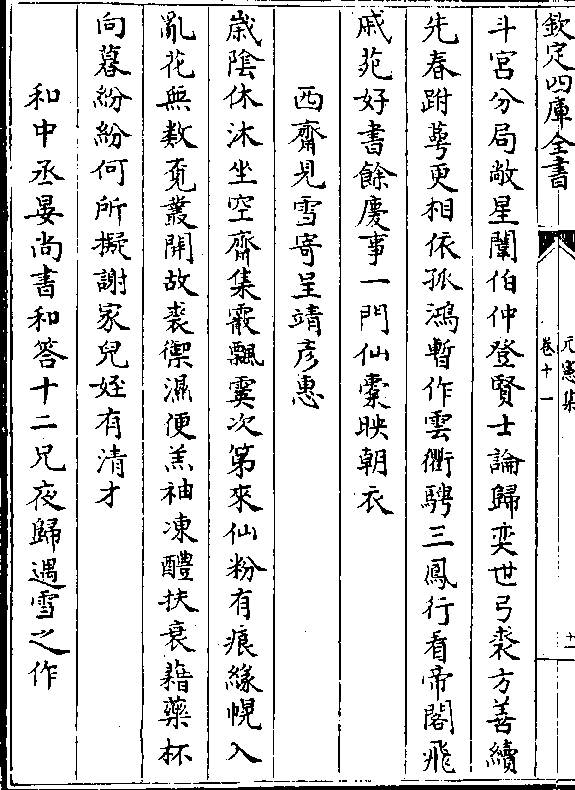 欽定四庫全書
元憲集
卷十一
十一
斗宮分局敞星闈伯仲登賢士論歸奕世弓裘方善續
先春跗萼更相依孤鴻暫作雲衢騁三鳳行看帝閣飛
戚苑好書餘慶事一門仙橐映朝衣
西齋見雪寄呈靖彥惠
歲陰休沐坐空齋集霰飄霙次第來仙粉有痕緣幌入
亂花無數覔叢開故裘禦濕便羔袖凍醴扶衰藉藥杯
向暮紛紛何所擬謝家兒姪有清才
和中丞晏尚書和答十二兄夜歸遇雪之作